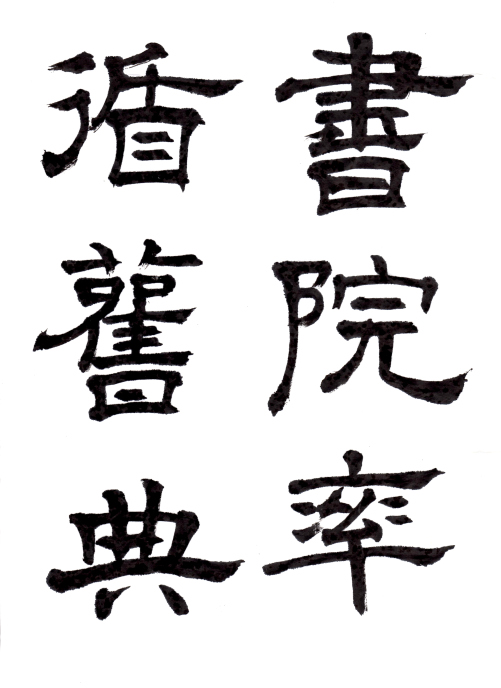 書院率
循舊典